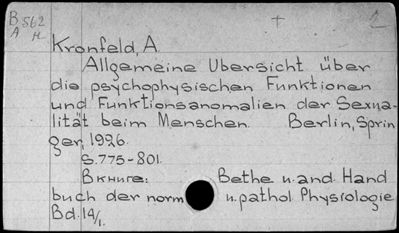 B 562
A H
Kronfeld, A.
Allgemeine Ubersicht über
die psychophysischen Funktionen
und Funktionsanomalien der Sexua-
lität beim Menschen. Berlin, Sprin
ger, 1926.
S. 775-801.
В книге: Bethe u. and. Hand
buch der norm u. pathol Physiologie
Bd. 14/1.